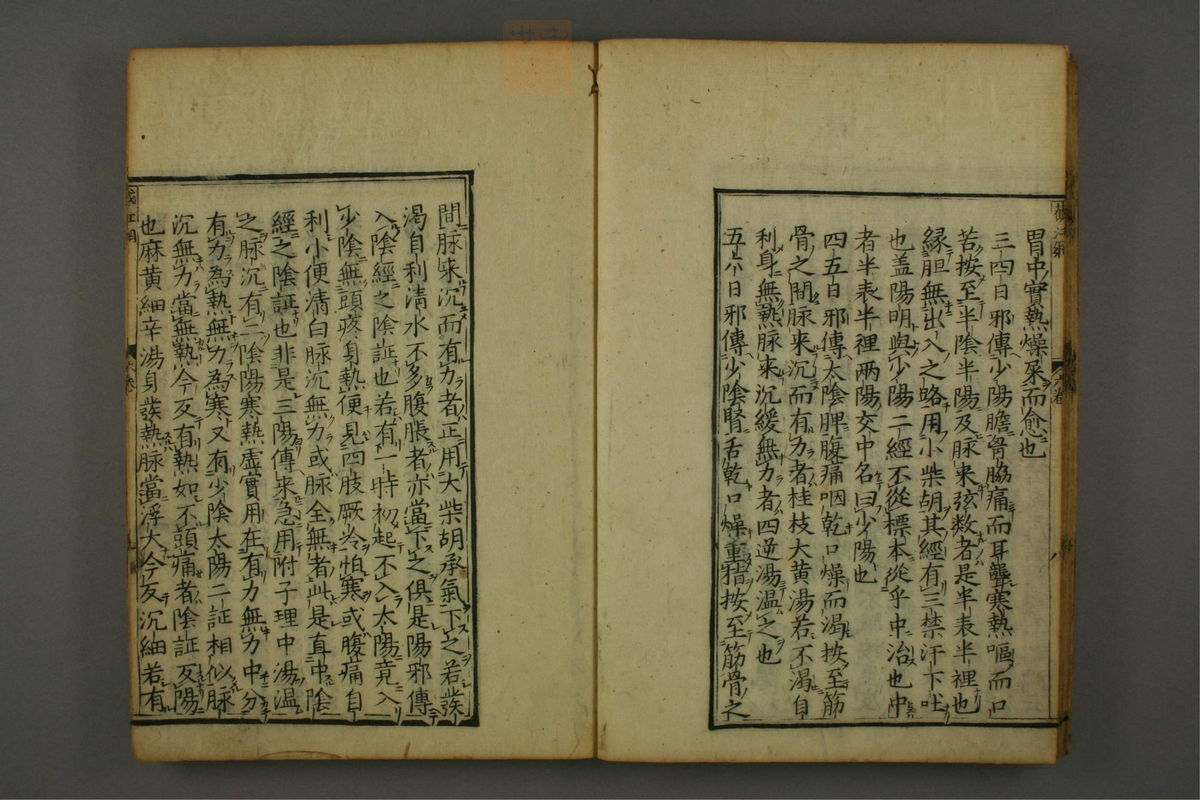 胃中實熱燥屎而愈也
三四日邪傳少陽膽骨脇痛而耳聾寒熱嘔而口
苦按至半陰半陽及脉来弦数者是半表半裡也
縁胆無出入之路用小柴胡其經有三禁汗下吐
也盖陽明與少陽二經不從標本從乎中治也中
者半表半裡兩陽交中名曰少陽也
四五日邪傳太陰脾腹痛咽乾口燥而渴按至筋
骨之間脉来沉而有力者桂枝大黄湯若不渴自
利身無熱脉来沉緩無力者四逆湯温之也
五六日邪傳少陰腎舌乾口燥重猎按至筋骨之
間脉来沉而有力者正用大柴胡承氣下之若發
渴自利清水不多腹脹者亦當下之俱是陽邪傳
入陰經之陰証也若有一時初起不入太陽竟入
少陰無頭疼身熱便見四肢厥冷怕寒或腹痛自
利小便清白脉沉無力或脉全無者此是直中陰
經之陰証也非是三陽傳来急用附子理中湯温
之脉沉有二陰陽寒熱虚實用在有力無力中分
有力為熱無力為寒又有少陰太陽二証相似脉
沉無力當無熱今反有熱如不頭痛者陰証反陽
也麻黄細辛湯身發熱脉當浮大今反沉細若有